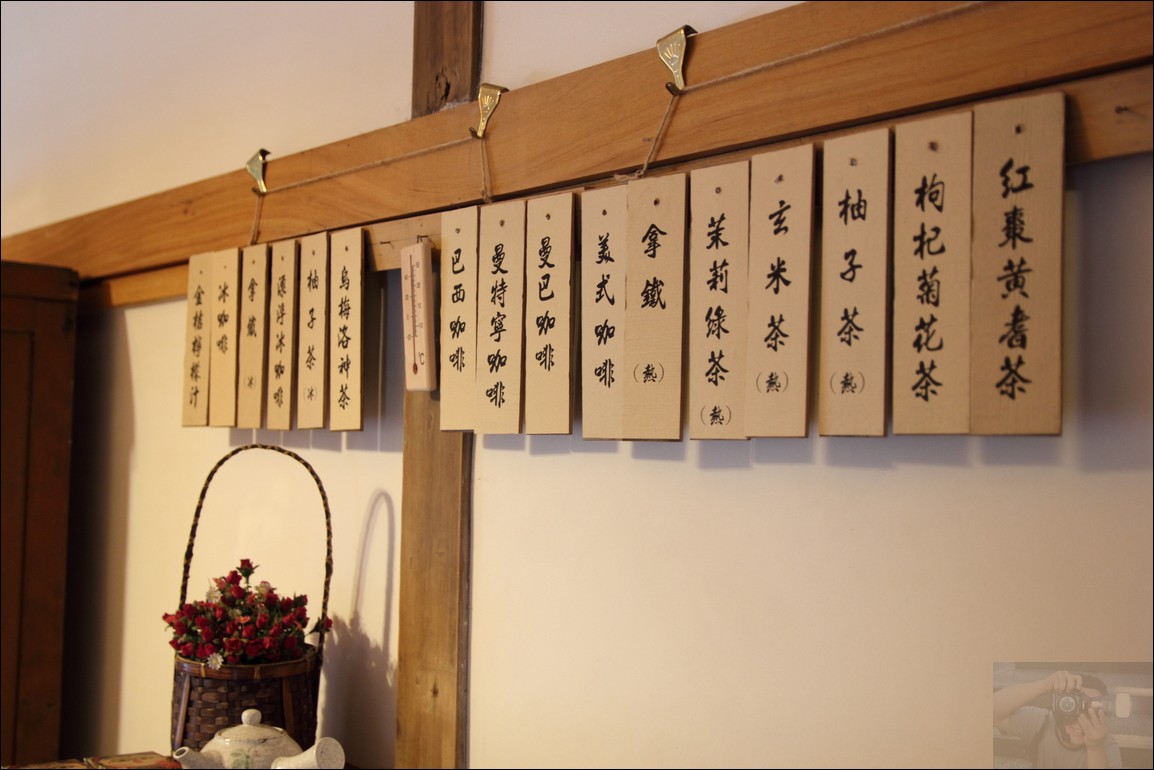 紅棗黃耆茶
枸杞菊花茶
柚子茶(熱)
玄米茶(熱)
茉莉綠茶(熱)
拿鐵(熱)
美式咖啡
曼巴咖啡
曼特寧咖啡
巴西咖啡
°C
烏梅洛神茶
柚子茶(冰)
漂浮冰咖啡
拿鐵(冰)
冰咖啡
金桔檸檬汁